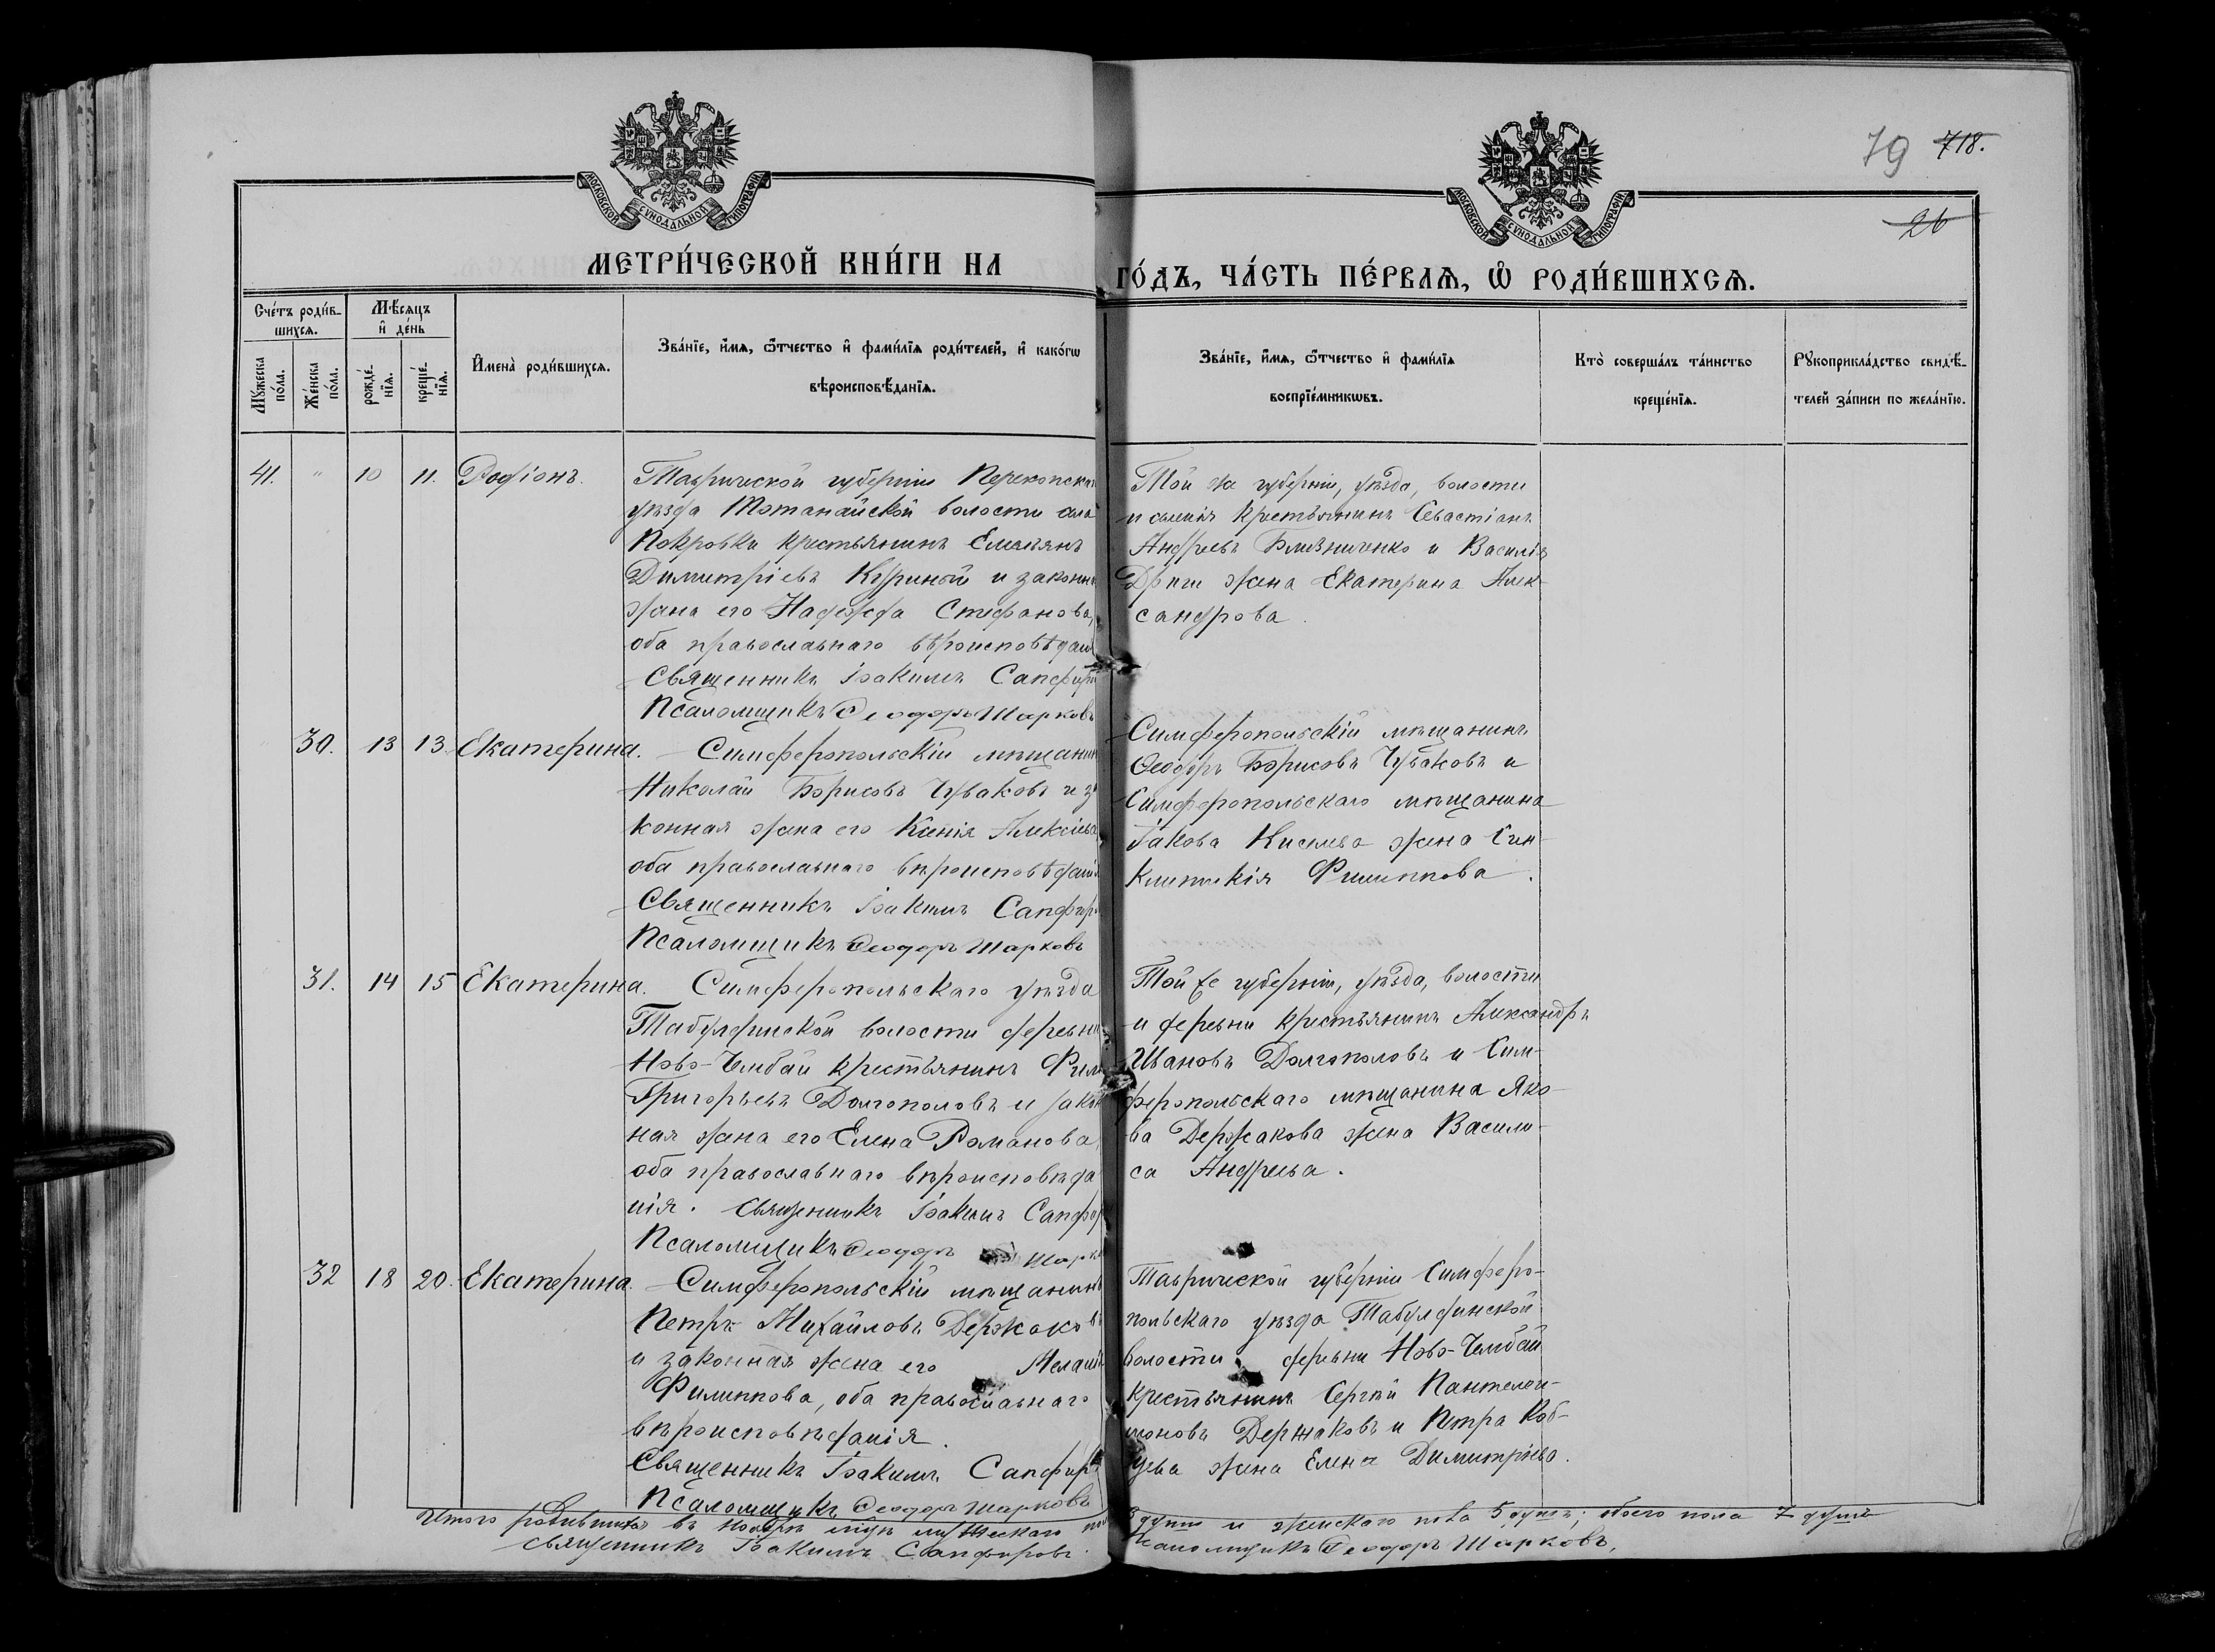 79 718.
26
МОСКОВСКОЙ СУНОДАЛЬНОЙ ТИПОГРАФІИ
МОСКОВСКОЙ СУНОДАЛЬНОЙ ТИПОГРАФІИ
МЕТРИ́ЧЕСКОЙ КНИ́ГИ НА ГО́ДЪ, ЧА́СТЬ ПЕ́РВАѦ, Ѡ҆ РОДИ́ВШИХСѦ.
Сче́тъ роди́вшихсѧ.
Мѣ́сяцъ и҆ де́нь
Мꙋ́жеска по́ла.
Же́нска по́ла.
рожде́нїѧ.
креще́нїѧ.
И҆мена̀ роди́вшихсѧ.
Зва́нїе, и҆́мѧ, ѻ҆́тчество и҆ фами́лїѧ роди́телей, и҆ како́гѡ
вѣроисповѣ́данїѧ.
Зва́нїе, и҆́мѧ, ѻ҆́тчество и҆ фами́лїѧ
воспрїе́мникѡвъ.
Кто̀ соверша́лъ та́инство
креще́нїѧ.
Рꙋкоприкла́дство свидѣ́-
телей за́писи по жела́нїю.
41. " 10 11. Родіонъ.
Таврической губерніи Перекопска
уѣзда Тотанайской волости села
Покровки крестьянинъ Емельянъ
Димитріевъ Куриной и законн
жена его Надежда Стефанова,
оба православнаго вѣроисповѣдан
Священникъ Іоакимъ Сапфир
Псаломщикъ Ѳеодоръ Шарковъ
Той же губерніи, уѣзда, волости
и селенія крестьянинъ Севастіанъ
Андреевъ Близниченко и Василія
Дриги жена Екатерина Алек-
сандрова.
30. 13 13 Екатерина.
Симферопольскій мѣщанин
Николай Борисовъ Чуваковъ и з
конная жена его Ксенія Алексіева
оба православнаго вѣроисповѣдані
Священникъ Іоакимъ Сапфир
Псаломщикъ Ѳеодоръ Шарковъ
Симферопольскій мѣщанинъ
Ѳеодоръ Борисовъ Чуваковъ и
Симферопольскаго мѣщанина
Іакова Киселева жена Син-
клитикія Филиппова.
31. 14 15 Екатерина.
Симферопольскаго уѣзда
Табулдинской волости деревни
Ново-Чембай крестьянинъ Фил
Григорьевъ Долгополовъ и закон
ная жена его Елена Романова,
оба православнаго вѣроисповѣда
нія. Священникъ Іоакимъ Сапфи
Псаломщикъ Ѳеодоръ Шарк
Той же губерніи, уѣзда, волости
и деревни крестьянинъ Александръ
Ивановъ Долгополовъ и Сим-
феропольскаго мѣщанина Яко-
ва Держакова жена Васили-
са Андреева.
32 18 20. Екатерина.
Симферопольскій мѣщанинъ
Петръ Михайловъ Держаковъ
и законная жена его Мелані
Филиппова, оба православнаго
вѣроисповѣданія.
Священникъ Іоакимъ Сапфир
Псаломщикъ Ѳеодоръ Шарковъ
Таврической губерніи Симферо-
польскаго уѣзда Табулдинской
волости деревни Ново-Чембай
крестьянинъ Сергѣй Пантелеи-
моновъ Держаковъ и Петра
жена Елена Димитріева.
Итого родившихся въ ноябрѣ м-цѣ мужескаго и женскаго пола 5 душъ; обоего пола 7 душъ
Священникъ Іоакимъ Сапфировъ. Псаломщикъ Ѳеодоръ Шарковъ.